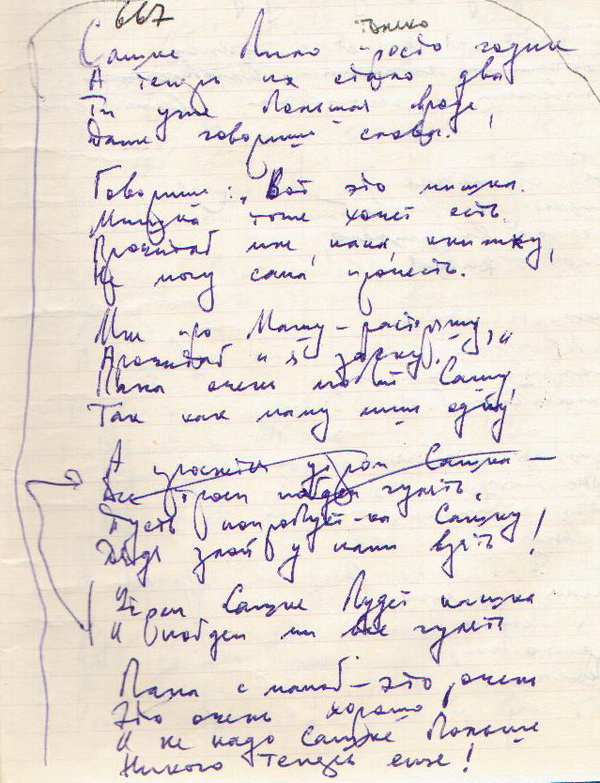 667
только
Сашке было просто годик
А теперь их стало два
Ты уже большая вроде,
Даже говоришь слова.
Говоришь: „Вот это мишка.
Мишка тоже хочет есть.
Прочитай мне, папа, книжку,
Не могу сама прочесть.
Мне про Машу-растеряшу
Прочитай и я засну."
Папа очень любит Сашу,
Так как маму лишь одну
А проснётся утром Сашка —
Все втроём пойдём гулять.
Пусть попробует-ка Сашку
Дядя злой у папы взять!
Утром Сашке будет кашка
И пойдём мы все гулять
Папа с мамой - это очень
Это очень хорошо
И не надо Сашке больше
Никого теперь ещё!